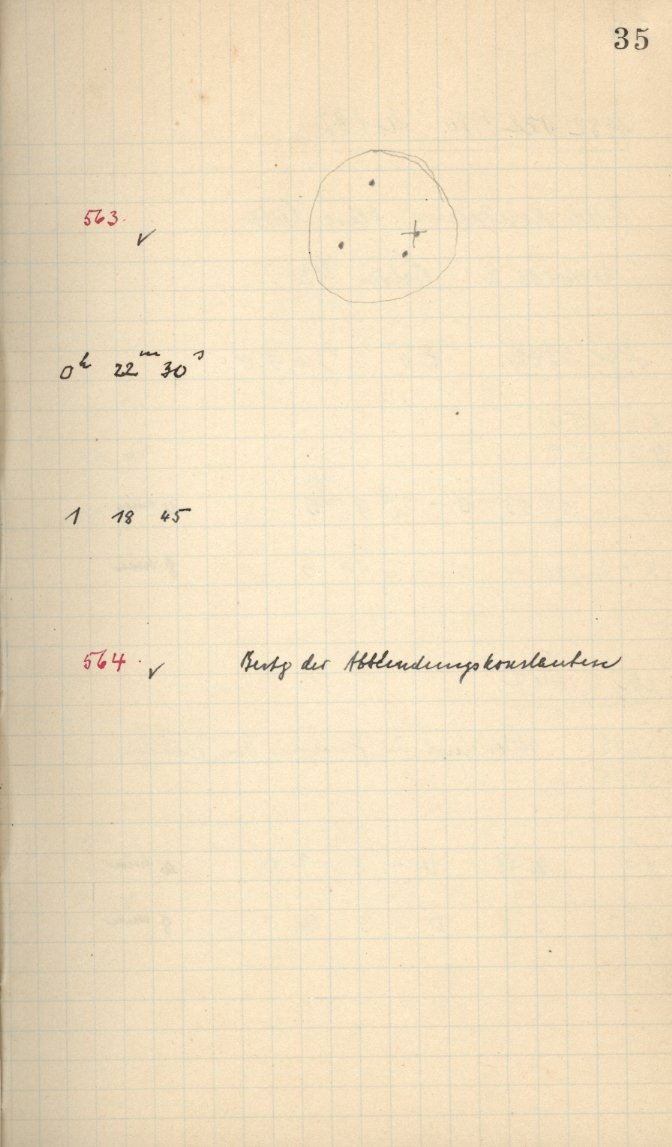 35
563. ✓
0ʰ 22ᵐ 30ˢ
1 18 45
564. ✓ Bestg der Abblendungskonstanten